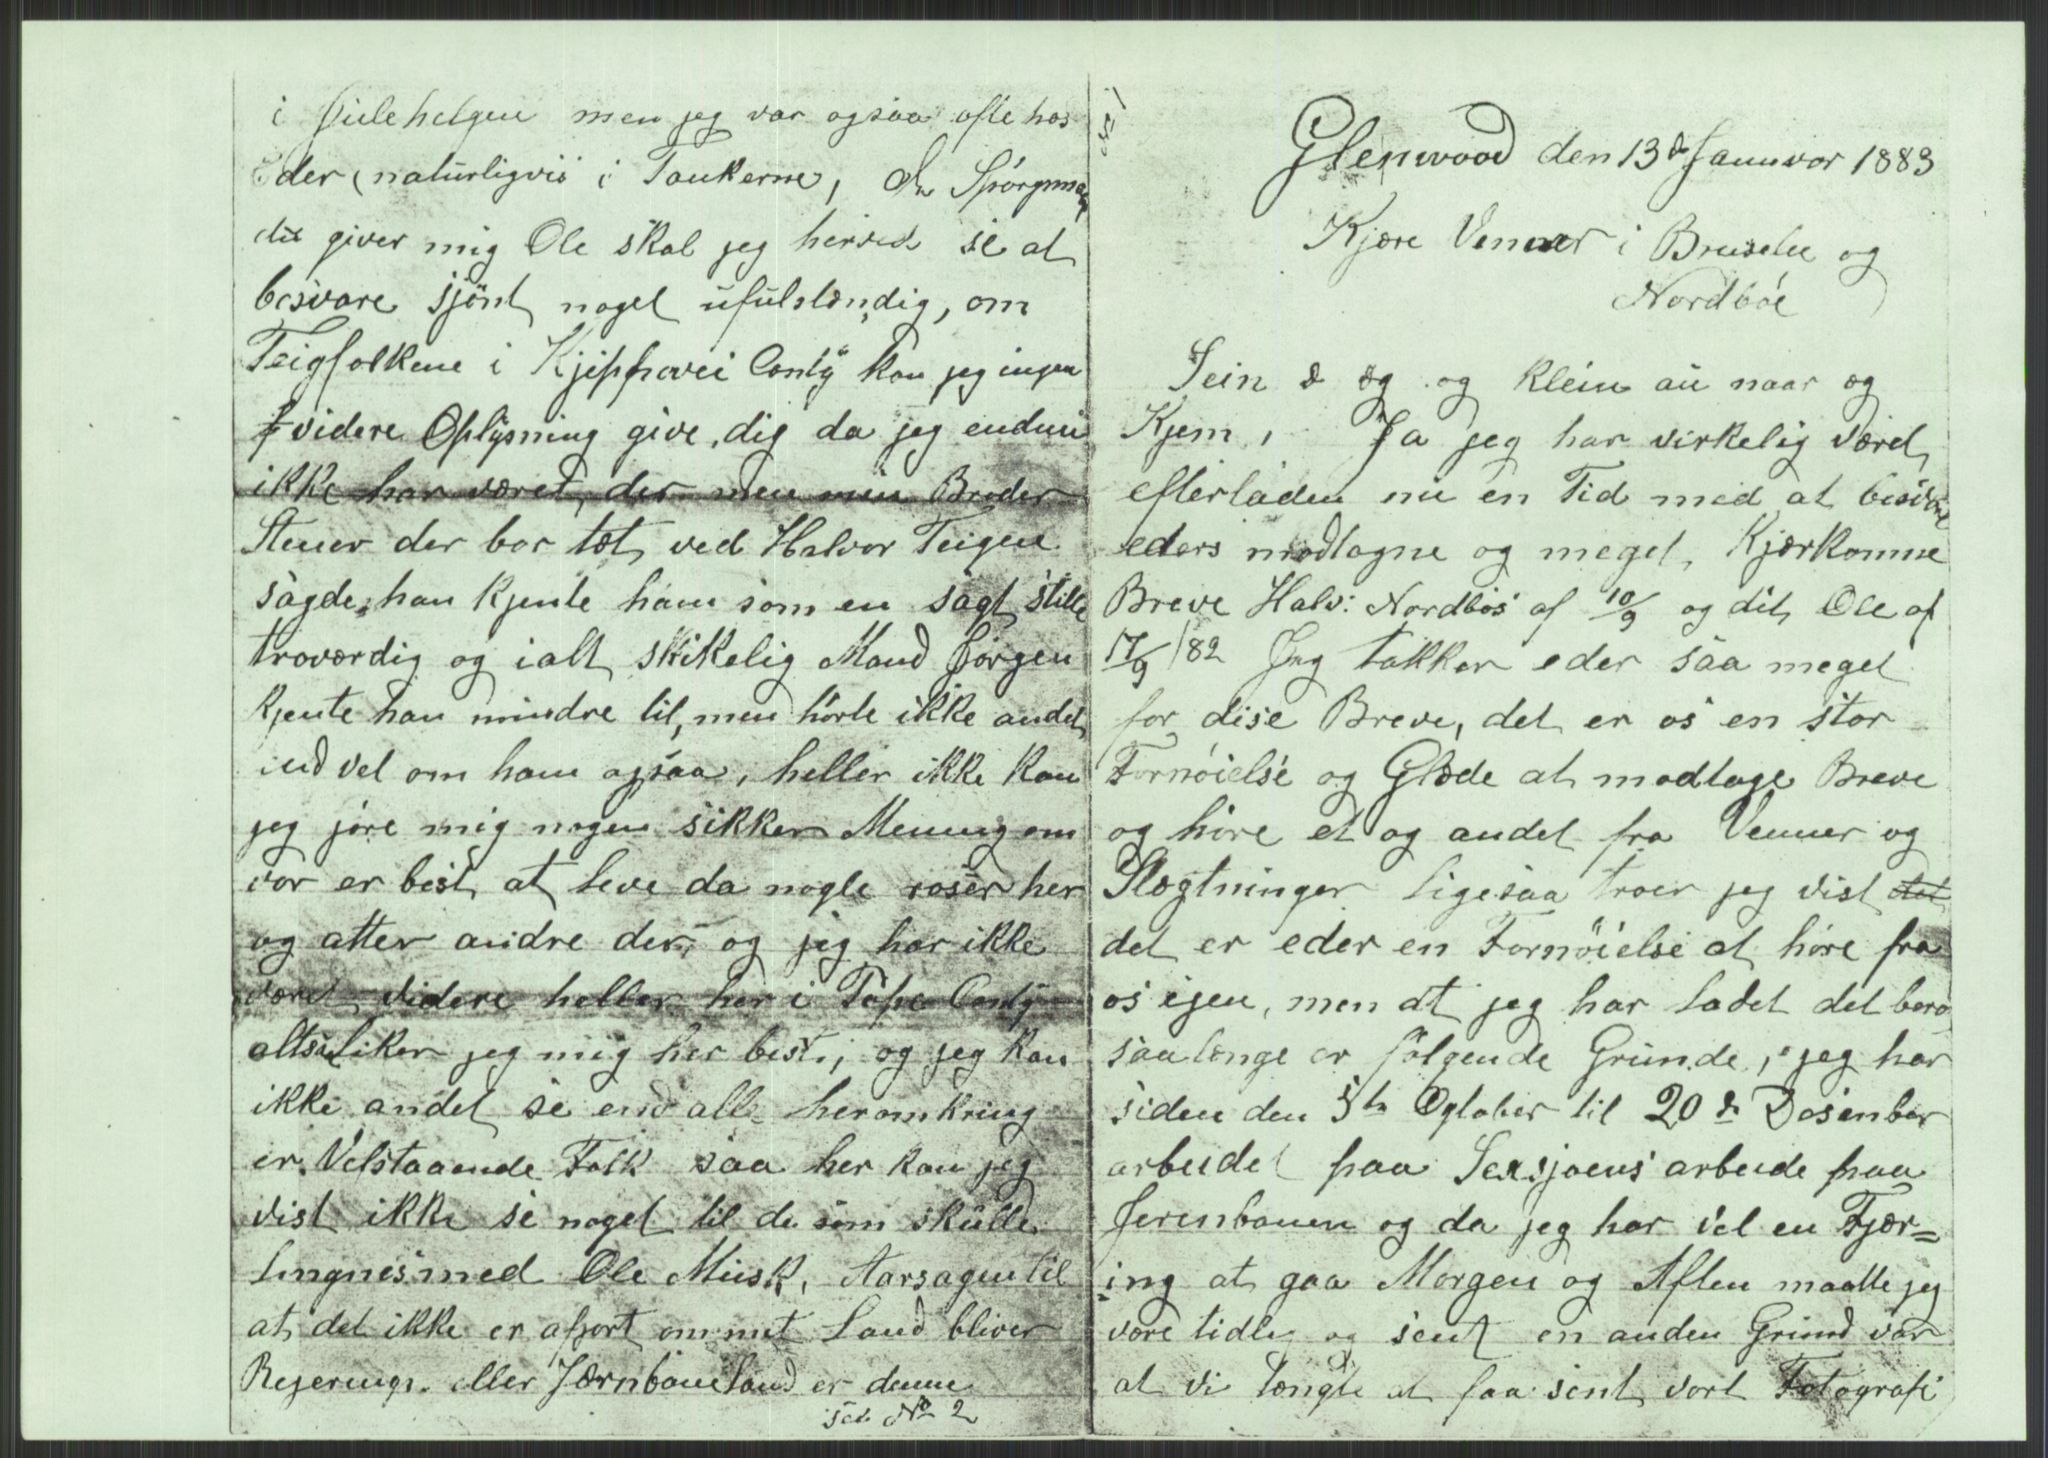 i Julehelgen men jeg var ogsaa ofte hos
Eder (naturligvis i Tankerne, De Spörgsmaal
du giver mig Ole skal jeg herved se at
besvare sjönt noget ufulstændig, om
Teigfolkene i Kjippevei Conty kan jeg ingen
videre Oplysning give dig da jeg endnu
ikke har været der men min Broder
Stener der bor tæt ved Halvor Teigen
sagde han kjente ham som en sagt stille
troværdig og ialt skikelig Mand Jörgen
kjente han mindre til, men hörte ikke andet
end vel om ham ogsaa, heller ikke kan
jeg jöre mig nogen sikker Mening om
vor er best at leve da nogle roser her
og atter andre der, og jeg har ikke
været videre heller her i Pope Conty
altsaa liker jeg mig her best, og jeg kan
ikke andet se end alle heromkring
er Velstaaende Folk saa her kan jeg
vist ikke se noget til de som skulle
lingnes med Ole Musk, Aarsagen til
at det ikke er aport om mit Land bliver
Regerings eller Jærnbaneland er denne
se No 2
No 1
Glenwood den 13de Januvar 1883
Kjære Venner i Bruselie og
Nordböe
Sein æ æg og klein au naar æg
Kjem, Ja jeg har virkelig væred
efterladen nu en Tid med at besvare
eders modtagne og meget Kjærkomne
Breve Halv: Nordbös af 10/9 og dit Ole af
17/9 /82 Jeg takker eder saa meget
for dise Breve, det er os en stor
Fornöielse og Glæde at modtage Breve
og höre et og andet fra Venner og
Slægtninger ligesaa troer jeg vist det
det er eder en Fornöielse at höre fra
os ijen, men at jeg har ladet det bero
saa længe er fölgende Grunde, jeg har
siden den 5te Oqtober til 20de Desember
arbeidet paa Sexsjoens arbeide paa
Jerenbanen og da jeg har vel en Fjær=
ing at gaa Morgen og Aften maatte jeg
være tidlig og sent en anden Grund var
at vi længte at faa sent vort Fotografi